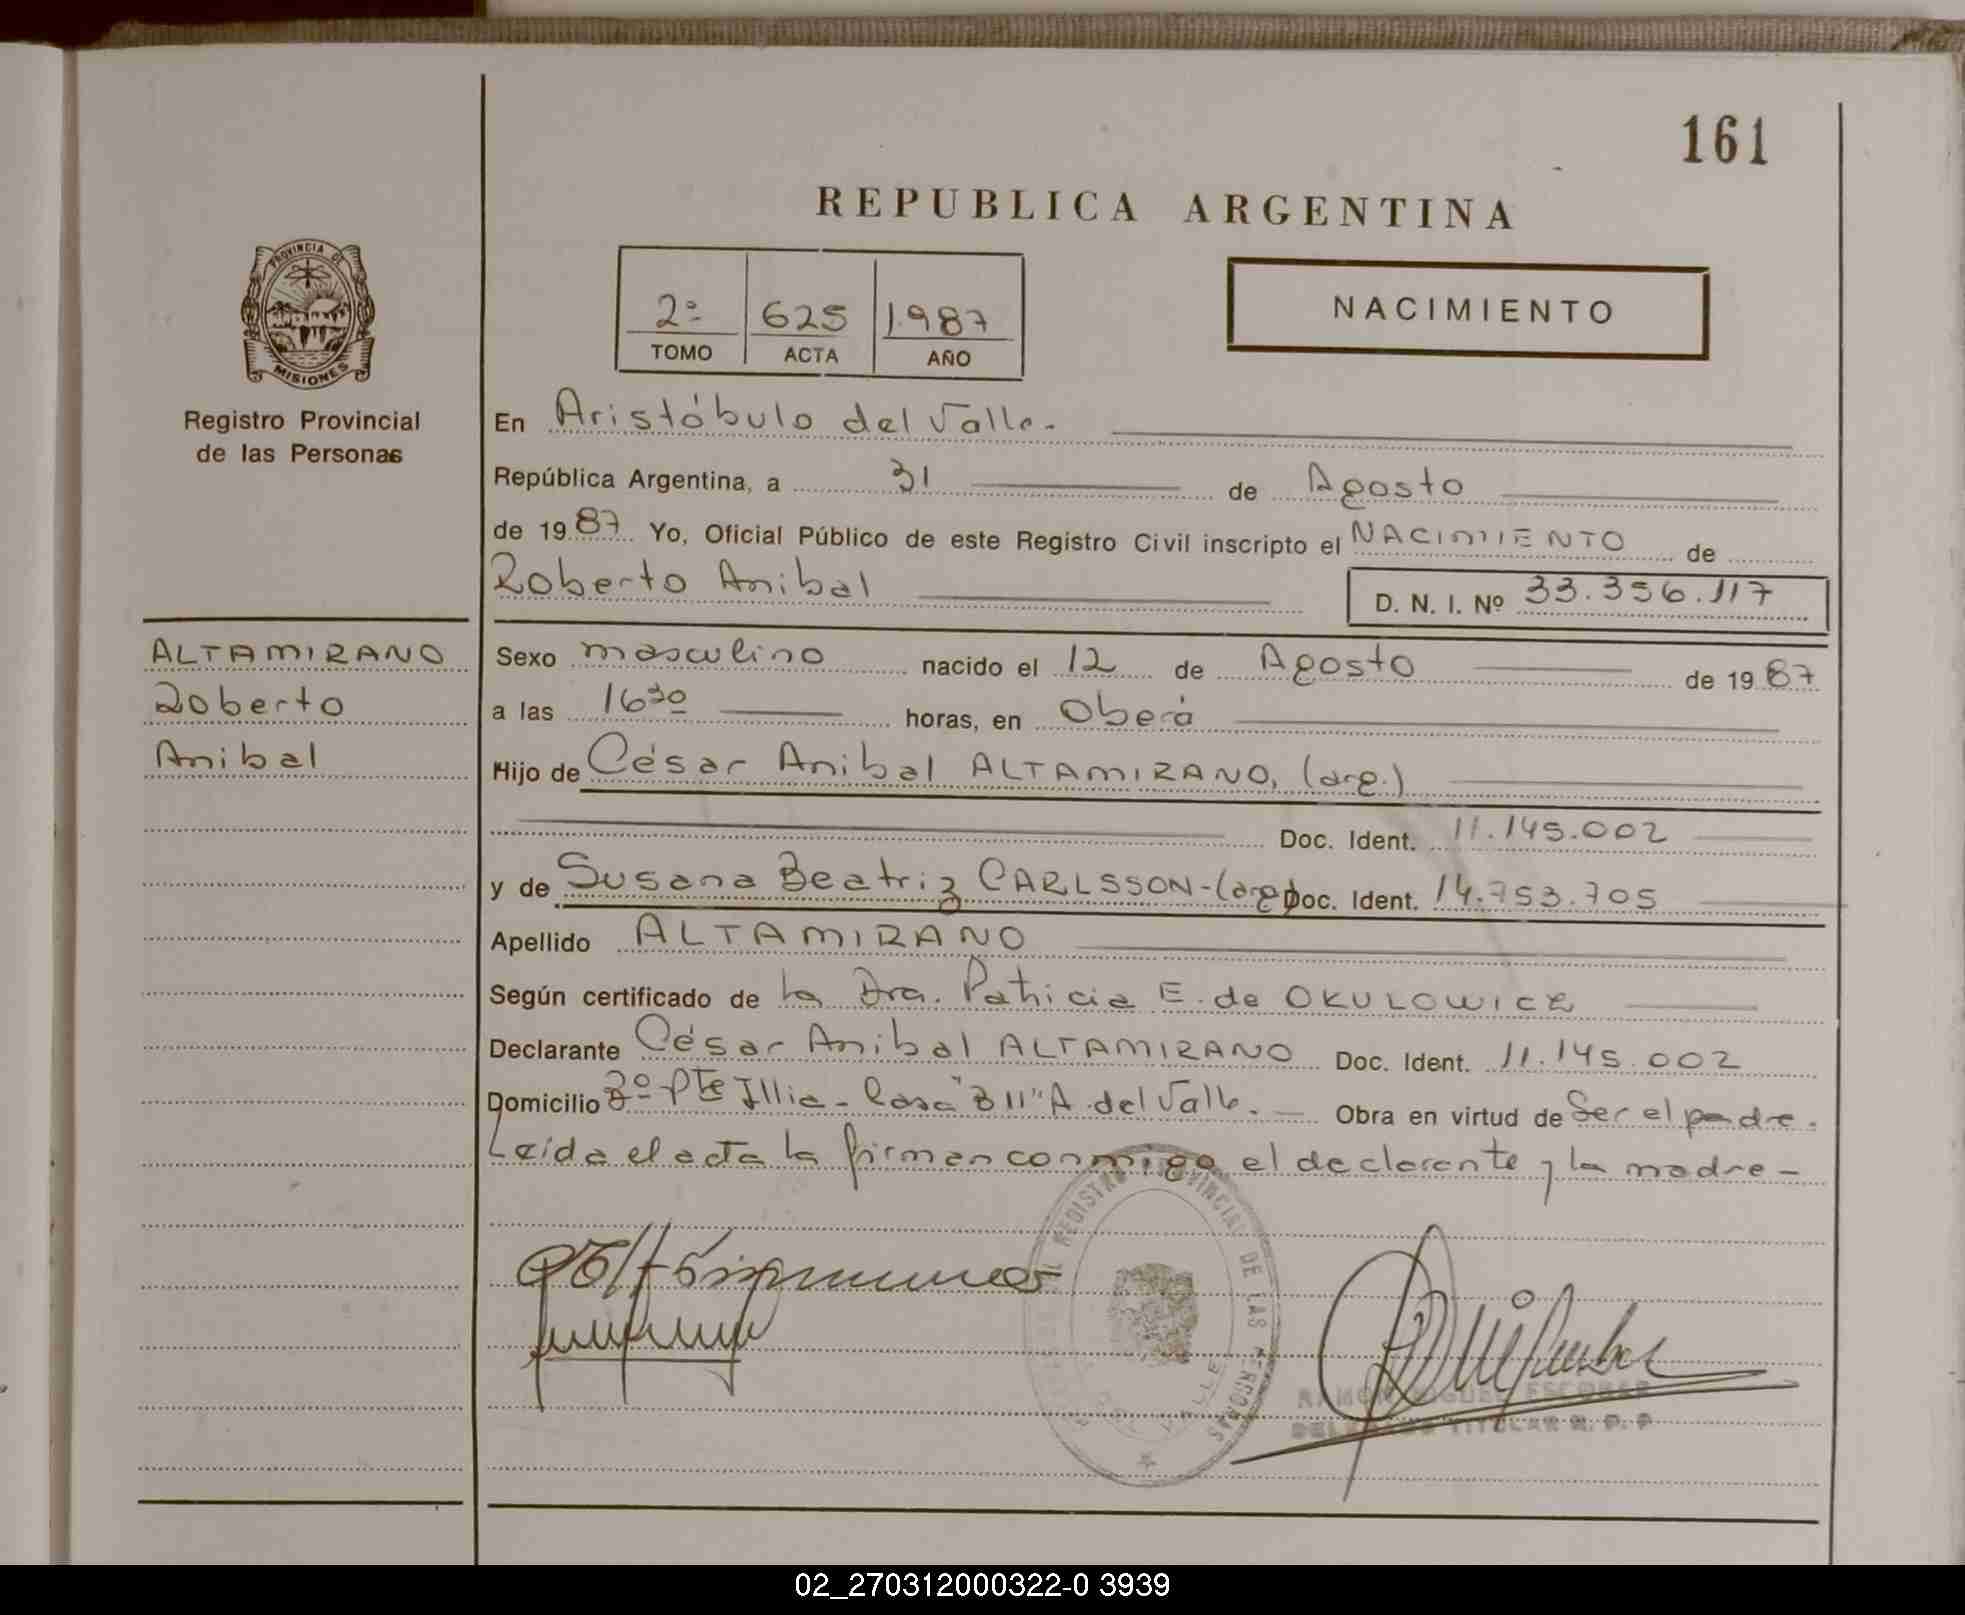 161
REPUBLICA ARGENTINA
PROVINCIA DE
MISIONES
Registro Provincial
de las Personas
2º 625 1.987
TOMO ACTA AÑO
NACIMIENTO
En Aristóbulo del Valle.
República Argentina, a 31 de Agosto
de 1987. Yo, Oficial Público de este Registro Civil inscripto el NACIMIENTO de
Roberto Anibal
D. N. I. Nº 33.356.117
ALTAMIRANO
Roberto
Anibal
Sexo masculino nacido el 12 de Agosto de 1987
a las 16³⁰ horas, en Oberá
Hijo de César Anibal ALTAMIRANO, (arg.)
Doc. Ident. 11.145.002
y de Susana Beatriz CARLSSON-(arg) Doc. Ident. 14.753.705
Apellido ALTAMIRANO
Según certificado de la Dra. Patricia E. de OKULOWICZ
Declarante César Anibal ALTAMIRANO Doc. Ident. 11.145.002
Domicilio Bº Pte Illia - Casa "B 11" A. del Valle. Obra en virtud de Ser el padre.
Leída el acta la firman conmigo el declarante y la madre-
REGISTRO PROVINCIAL DE LAS PERSONAS
VALLE
RAMON MIGUEL ESCOBAR
DELEGADO TITULAR R. P. P
02_270312000322-0 3939